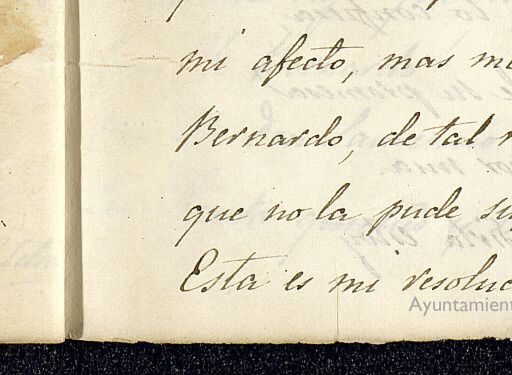 mi afecto, mas
Bernardo, de tal
que no la pude
Esta es mi
Ayuntamient